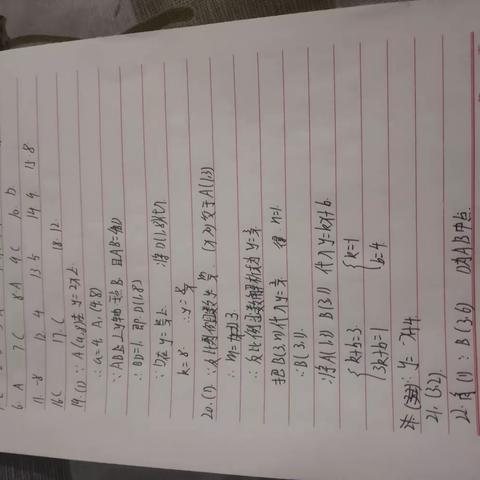 6. A 7. C 8. A 9. C 10. D
11. -8 12. 4 13. 5 14. 9 15. 8
16. C 17. C 18. 12
19. (1) ∵ A(a,8)在 y=2x上
∴a=4, A(4,8)
∵AB⊥y轴于 B, 且AB=4BD
∴BD=1, 即 D(1,8)
∵D在 y=k/x上 将D(1,8)代入
k=8 ∴y=8/x
20. (1) ∵反比例函数y=m/x (x>0)交于A(1,3)
∴m=3
∴反比例函数解析式为 y=3/x
把B(3,n)代入y=3/x 得 n=1
∴B(3,1)
∵将A(1,3) B(3,1) 代入y=kx+b
{k+b=3 {k=-1
{3k+b=1 {b=4
∴y=-x+4
21. (3,2).
22. (1): B(3,6) D为AB中点